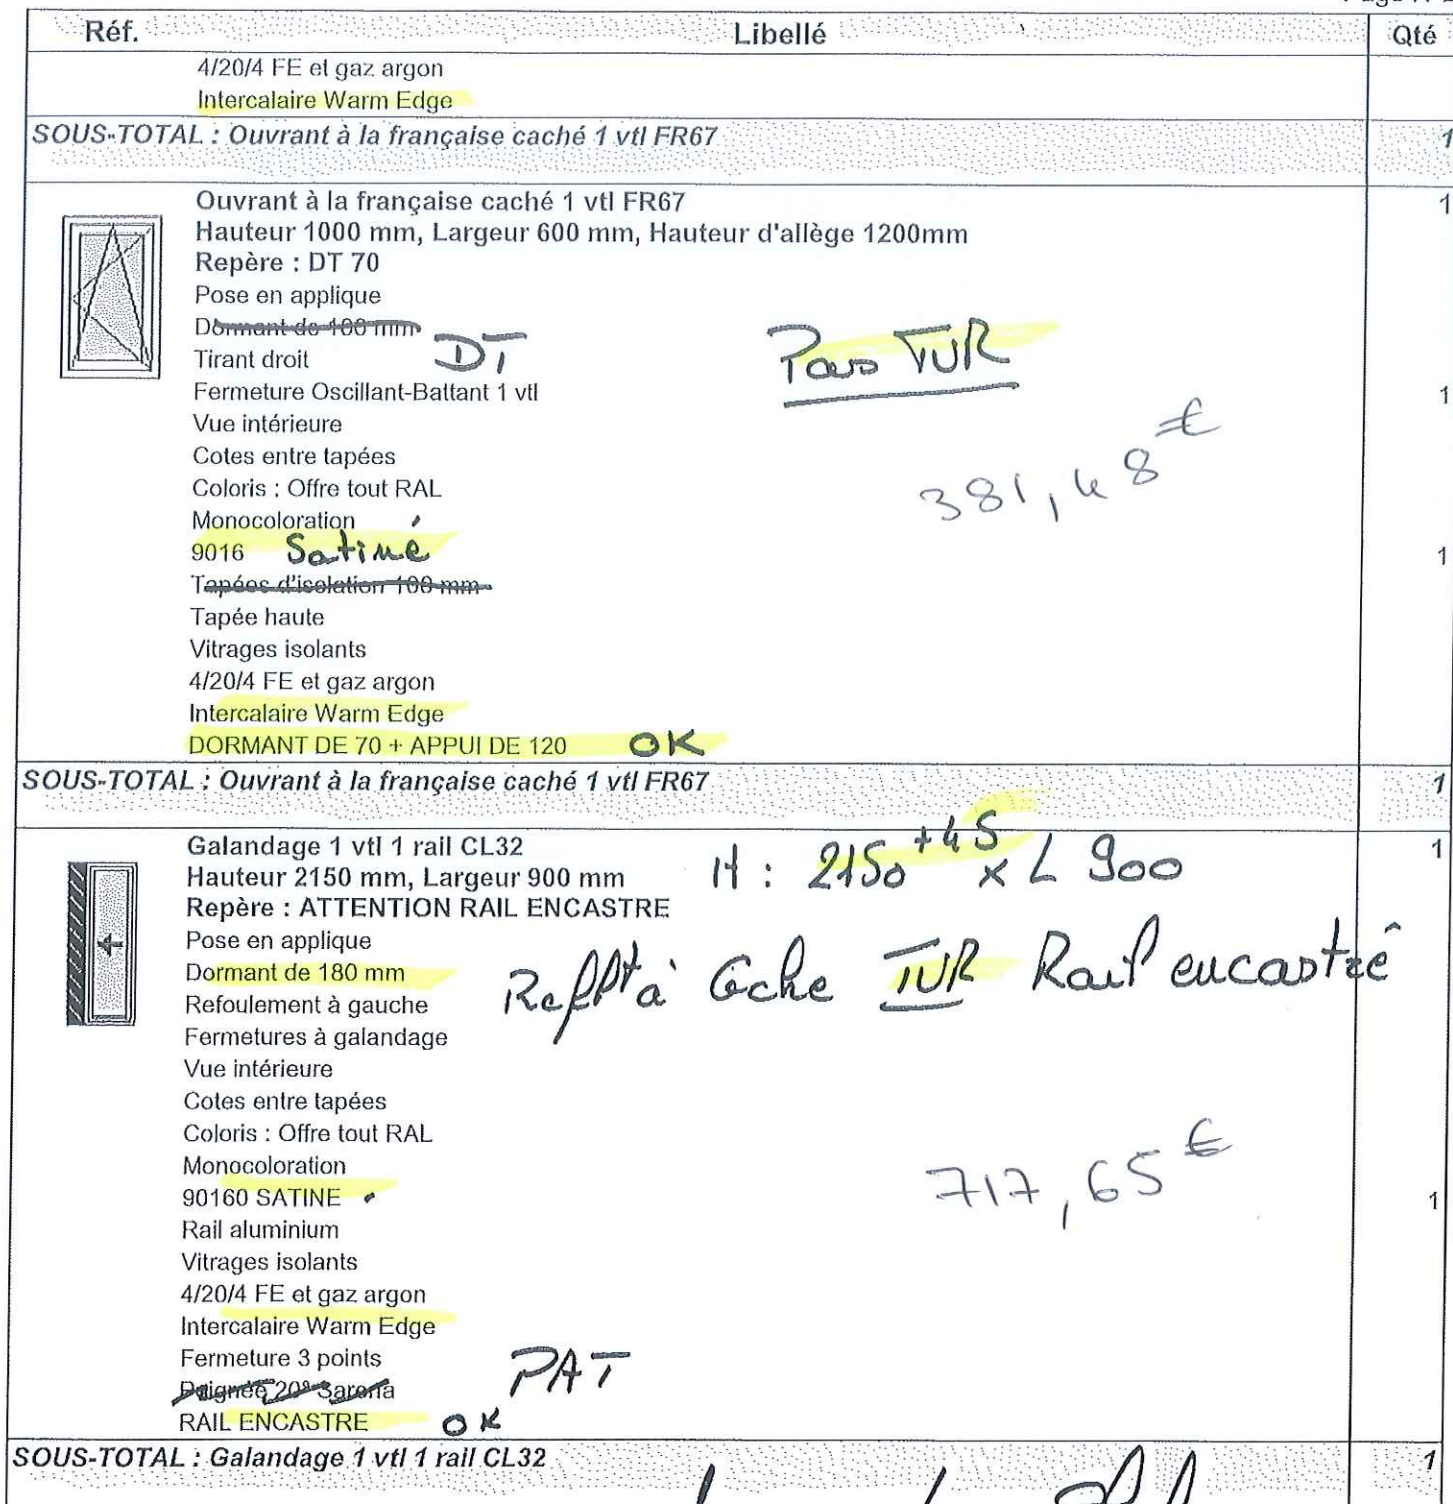 Réf. Libellé Qté
4/20/4 FE et gaz argon
Intercalaire Warm Edge
SOUS-TOTAL : Ouvrant à la française caché 1 vtl FR67 1
Ouvrant à la française caché 1 vtl FR67 1
Hauteur 1000 mm, Largeur 600 mm, Hauteur d'allège 1200mm
Repère : DT 70
Pose en applique
Dormant de 100 mm
Tirant droit DT Pas TUR
Fermeture Oscillant-Battant 1 vtl 1
Vue intérieure
Cotes entre tapées
Coloris : Offre tout RAL 381,48 €
Monocoloration
9016 Satiné 1
Tapées d'isolation 100 mm
Tapée haute
Vitrages isolants
4/20/4 FE et gaz argon
Intercalaire Warm Edge
DORMANT DE 70 + APPUI DE 120 OK
SOUS-TOTAL : Ouvrant à la française caché 1 vtl FR67 1
Galandage 1 vtl 1 rail CL32 1
Hauteur 2150 mm, Largeur 900 mm H : 2150 +45 x L 900
Repère : ATTENTION RAIL ENCASTRE
Pose en applique
Dormant de 180 mm
Refoulement à gauche Reflt à Gche TUR Rail encastré
Fermetures à galandage
Vue intérieure
Cotes entre tapées
Coloris : Offre tout RAL
Monocoloration
90160 SATINE 717,65 € 1
Rail aluminium
Vitrages isolants
4/20/4 FE et gaz argon
Intercalaire Warm Edge
Fermeture 3 points PAT
Poignée 20° Sarona
RAIL ENCASTRE OK
SOUS-TOTAL : Galandage 1 vtl 1 rail CL32 1